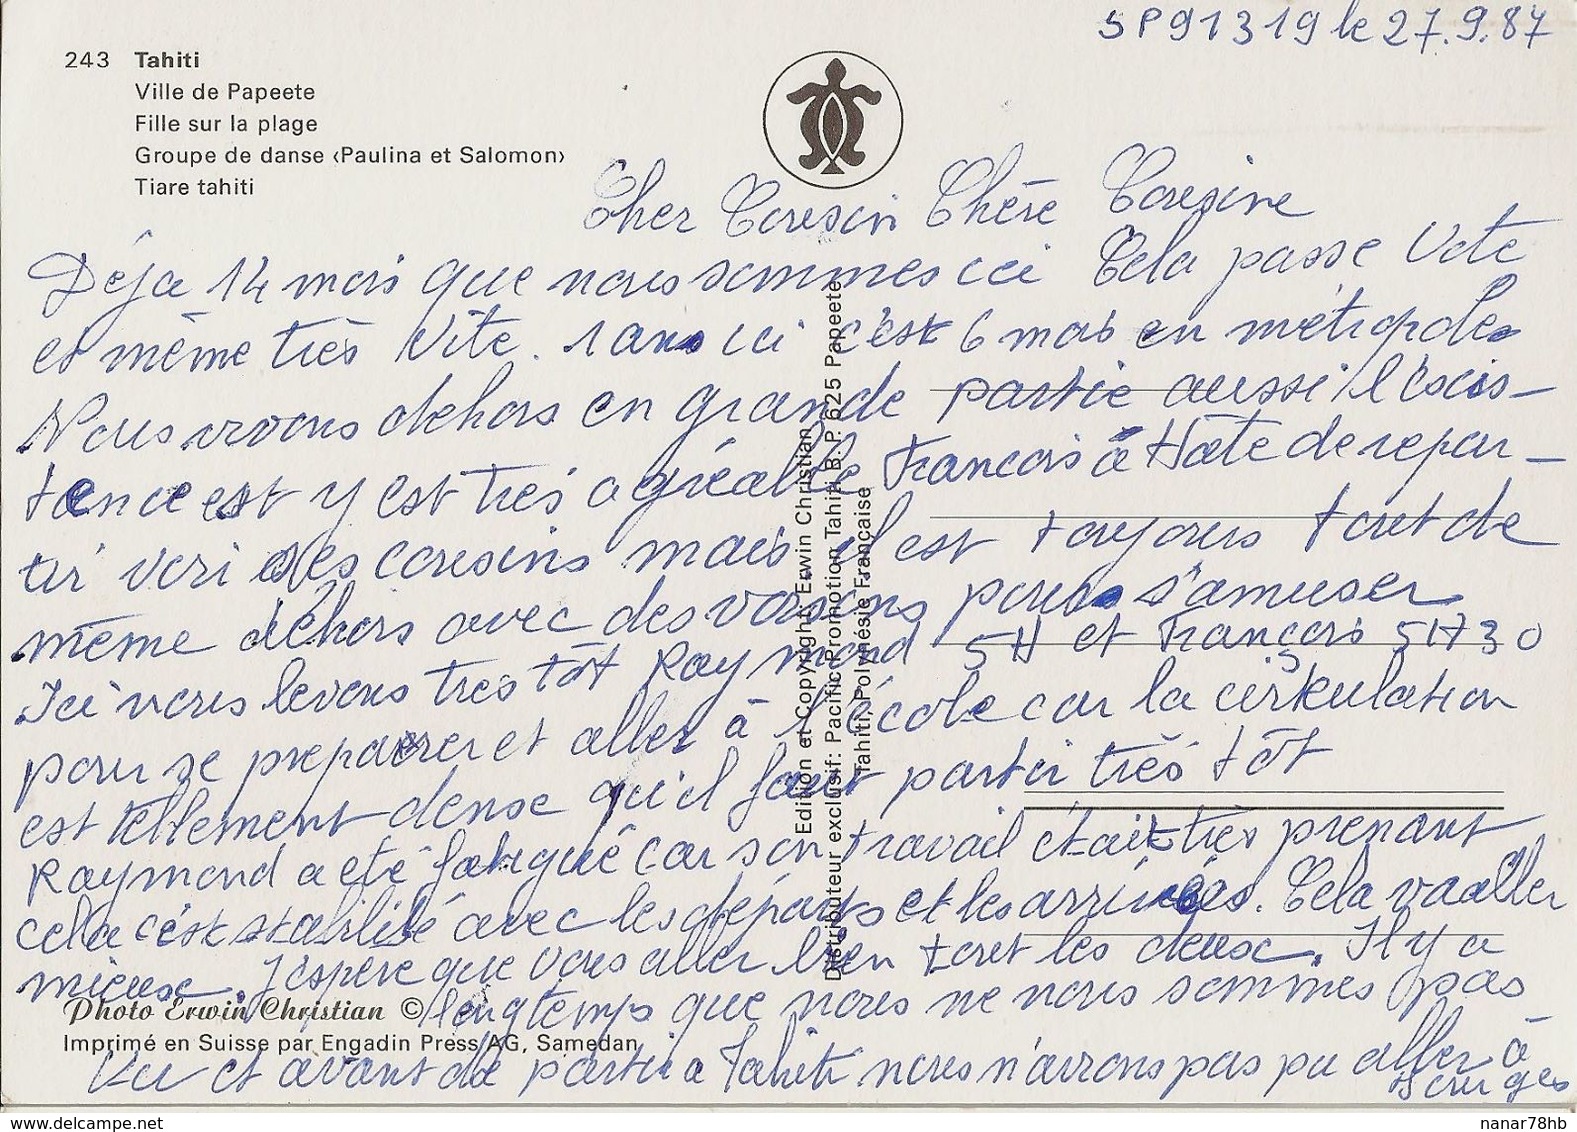 SP91319 le 27.9.87
243 Tahiti
Ville de Papeete
Fille sur la plage
Groupe de danse ‹Paulina et Salomon›
Tiare tahiti
Cher Cousin Chère Cousine
Déja 14 mois que nous sommes ici Cela passe Vite
et même très Vite. 1 ans ici c'est 6 mois en métropoles
Nous vivons dehors en grande partie aussi l'éxis-
tence est y est très agréable François à Hâte de repar-
tir voir ses cousins mais il est toujours tout de
même dehors avec des voisins pour s'amuser
Ici nous levons tres tôt Raymond 5H et François 5H30
pour se preparer et aller à l'école car la cirkulation
est tellement dense qu'il faut partir très tôt
Raymond a été fatigué car son travail était très prenant
cela c'est stabilisé avec les départs et les arrivées. Cela va aller
mieux. J'espère que vous aller bien tout les deux. Il y a
longtemps que nous ne nous sommes pas
Vu et avant de partir a Tahiti nous n'avons pas pu aller à
Bourges
Edition et Copyright: Erwin Christian
Distributeur exclusif: Pacific Promotion Tahiti B. P. 625 Papeete
Tahiti, Polynésie Française
Photo Erwin Christian ©
Imprimé en Suisse par Engadin Press AG, Samedan
delcampe.net
nanar78hb